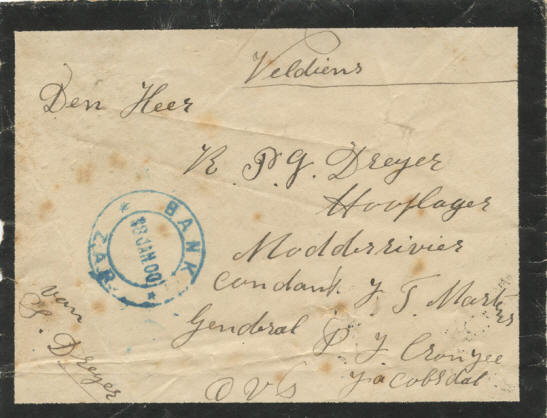 Veldiens
Den Heer
R P.G. Dreyer
Hooflager
Modderrivier
Condant J T Martens
Genderal P J Cronjee
Jacobsdal
O V S
van
S. Dreyer
BANK
18 JAN. 00
ZAR